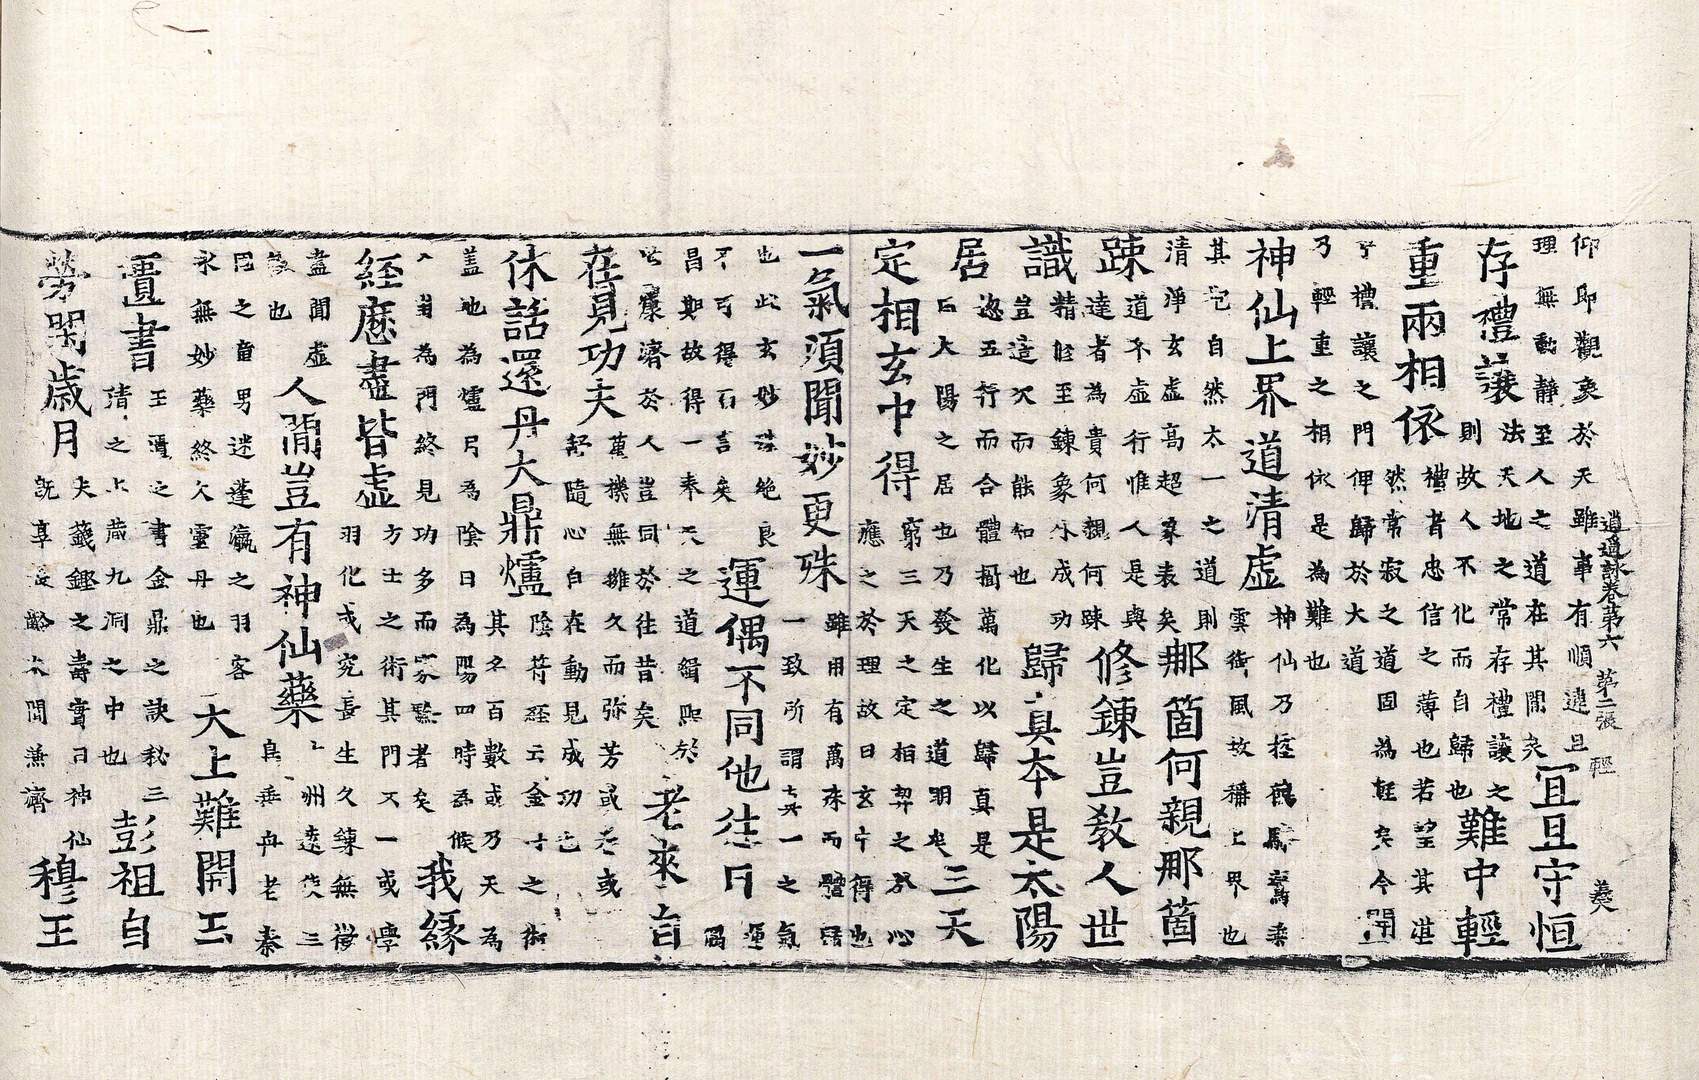 逍遥詠卷第六 第二張 輕 義天
仰即觀衷於天雖事有順違且
理無動靜至人之道在其間矣
宜且守恒
存禮讓
法天天地之常存禮讓之
則故人不化而自歸也
難中輕
重兩相依
禮者忠信之薄也若望其湛
然常寂之道固為輕矣今開
于禮讓之門俾歸於大道
乃輕重之相依是為難也
神仙上界道清虛
神仙乃控鶴駕鸞乘
雲御風故稱上界也
其包自然太一之道則
清淨玄虛高超象表矣
那箇何親那箇
踈
道不虛行惟人是與
達者為貴何親何踈
修鍊豈教人世
識
精修至鍊象外成功
豈造次而能知也
歸真本是太陽
居
忽五行而合體搆萬化以歸真是
曰大陽之居也乃發生之道明矣
三天
定相玄中得
窮三天之定相契之於心
應之於理故曰玄中得也
一氣須聞妙更殊
雖用有萬殊而體歸
一致所謂其一之氣
也此玄妙殊絶良
不可得而言矣
運偶不同他往日
運
偶
昌期故得一奉天之道緝熙於
康濟於人豈同於往昔矣
老來言
在見功夫
萬機無擁久而弥芳或老或
舒隨心自在動見成功也
休話還丹大鼎爐
陰符經云金寸之術
其名百數或乃天為
盖地為爐月為陰日為陽四時為候
八卦為門終見功多而寡驗者矣
我緣
經歷盡皆虛
方士之術其門不一或學
羽化或究長生久鍊無徵
盡聞虛
也
人間豈有神仙藥
州遠使三
島乖舟老秦
同之童男迷蓬瀛之羽客
永無妙藥終久靈丹也
大上難開玉
匱書
玉清之書金鼎之訣秘三
清之上歳九洞之中也
彭祖自
勞閑歲月
夫籛鏗之壽實曰神仙
既享長齡本聞兼濟
穆王